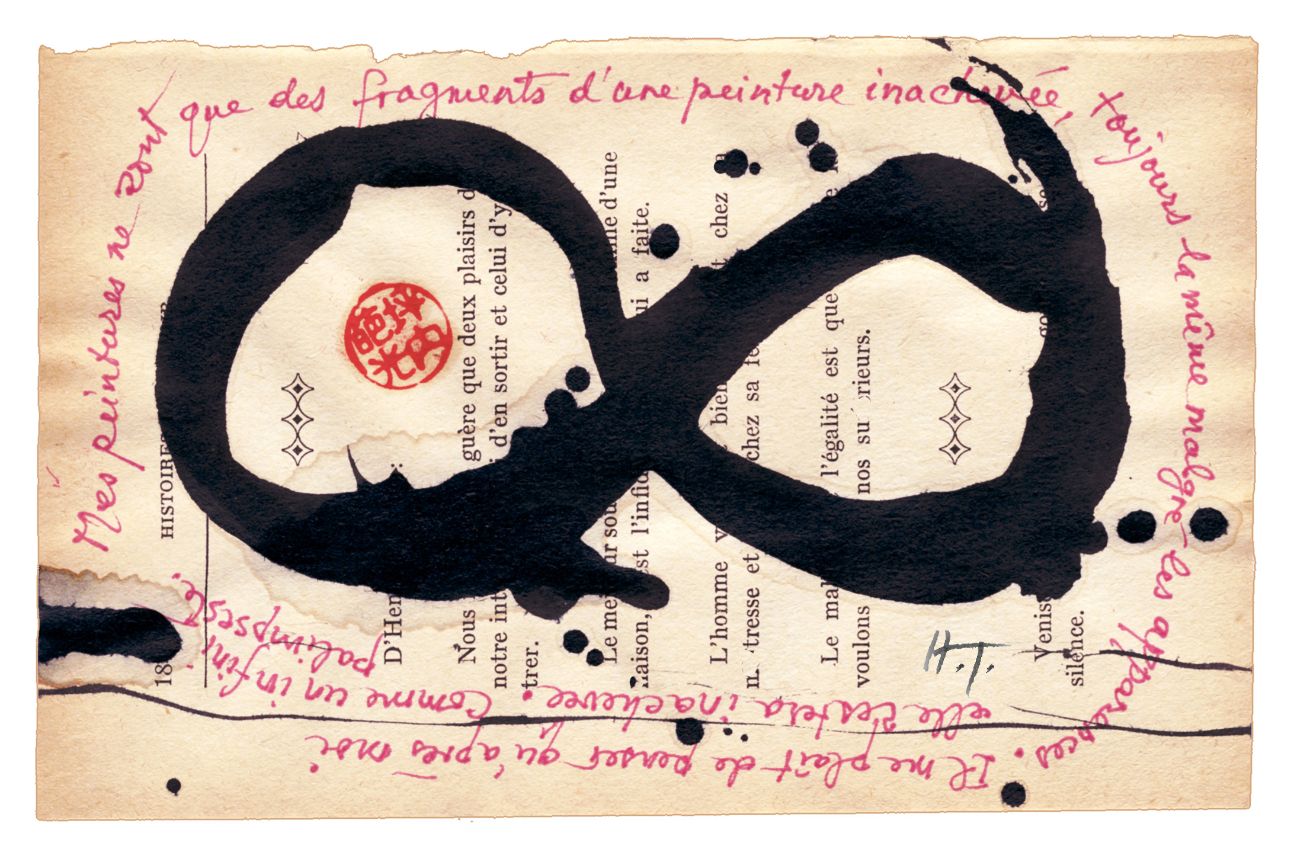 Mes peintures ne sont que des fragments d'une peinture inachevée, toujours la même malgré les apparences. Il me plaît de penser qu'après moi
elle restera inachevée. Comme un infini
palimpseste.
HISTOIRES
18
D'Hen
:
Nous guère que deux plaisirs d
notre int d'en sortir et celui d'y
trer.
Le me ur sou me d'une
raison, est l'infid ui a faite.
L'homme v bien t chez
tresse et chez sa fe
Le mal l'égalité est que
voulons nos su rieurs.
Venis
silence.
H.T.